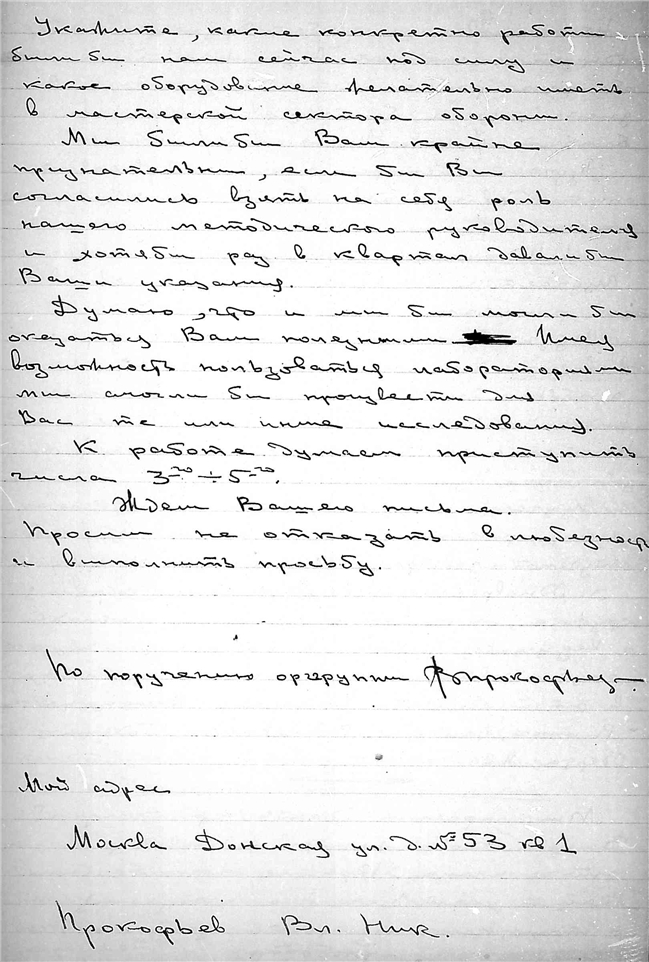 Укажите, какие конкретно работы
были бы нам сейчас под силу и
какое оборудование желательно иметь
в мастерской сектора обороны.
Мы были бы Вам крайне
признательны, если бы Вы
согласились взять на себя роль
нашего методического руководителя
и хотябы раз в квартал давали бы
Ваши указания.
Думаю, что и мы бы могли бы
оказаться Вам полезными Имея
возможность пользоваться лабораториями
мы смогли бы произвести для
Вас те или иные исследования.
К работе думаем приступить
числа 3-го ÷ 5-го.
Ждем Вашего письма.
Просим не отказать в любезности
и выполнить просьбу.
По поручению орггруппы ВПрокофьев
Мой адрес
Москва Донская ул. д. № 53 кв 1
Прокофьев Вл. Ник.